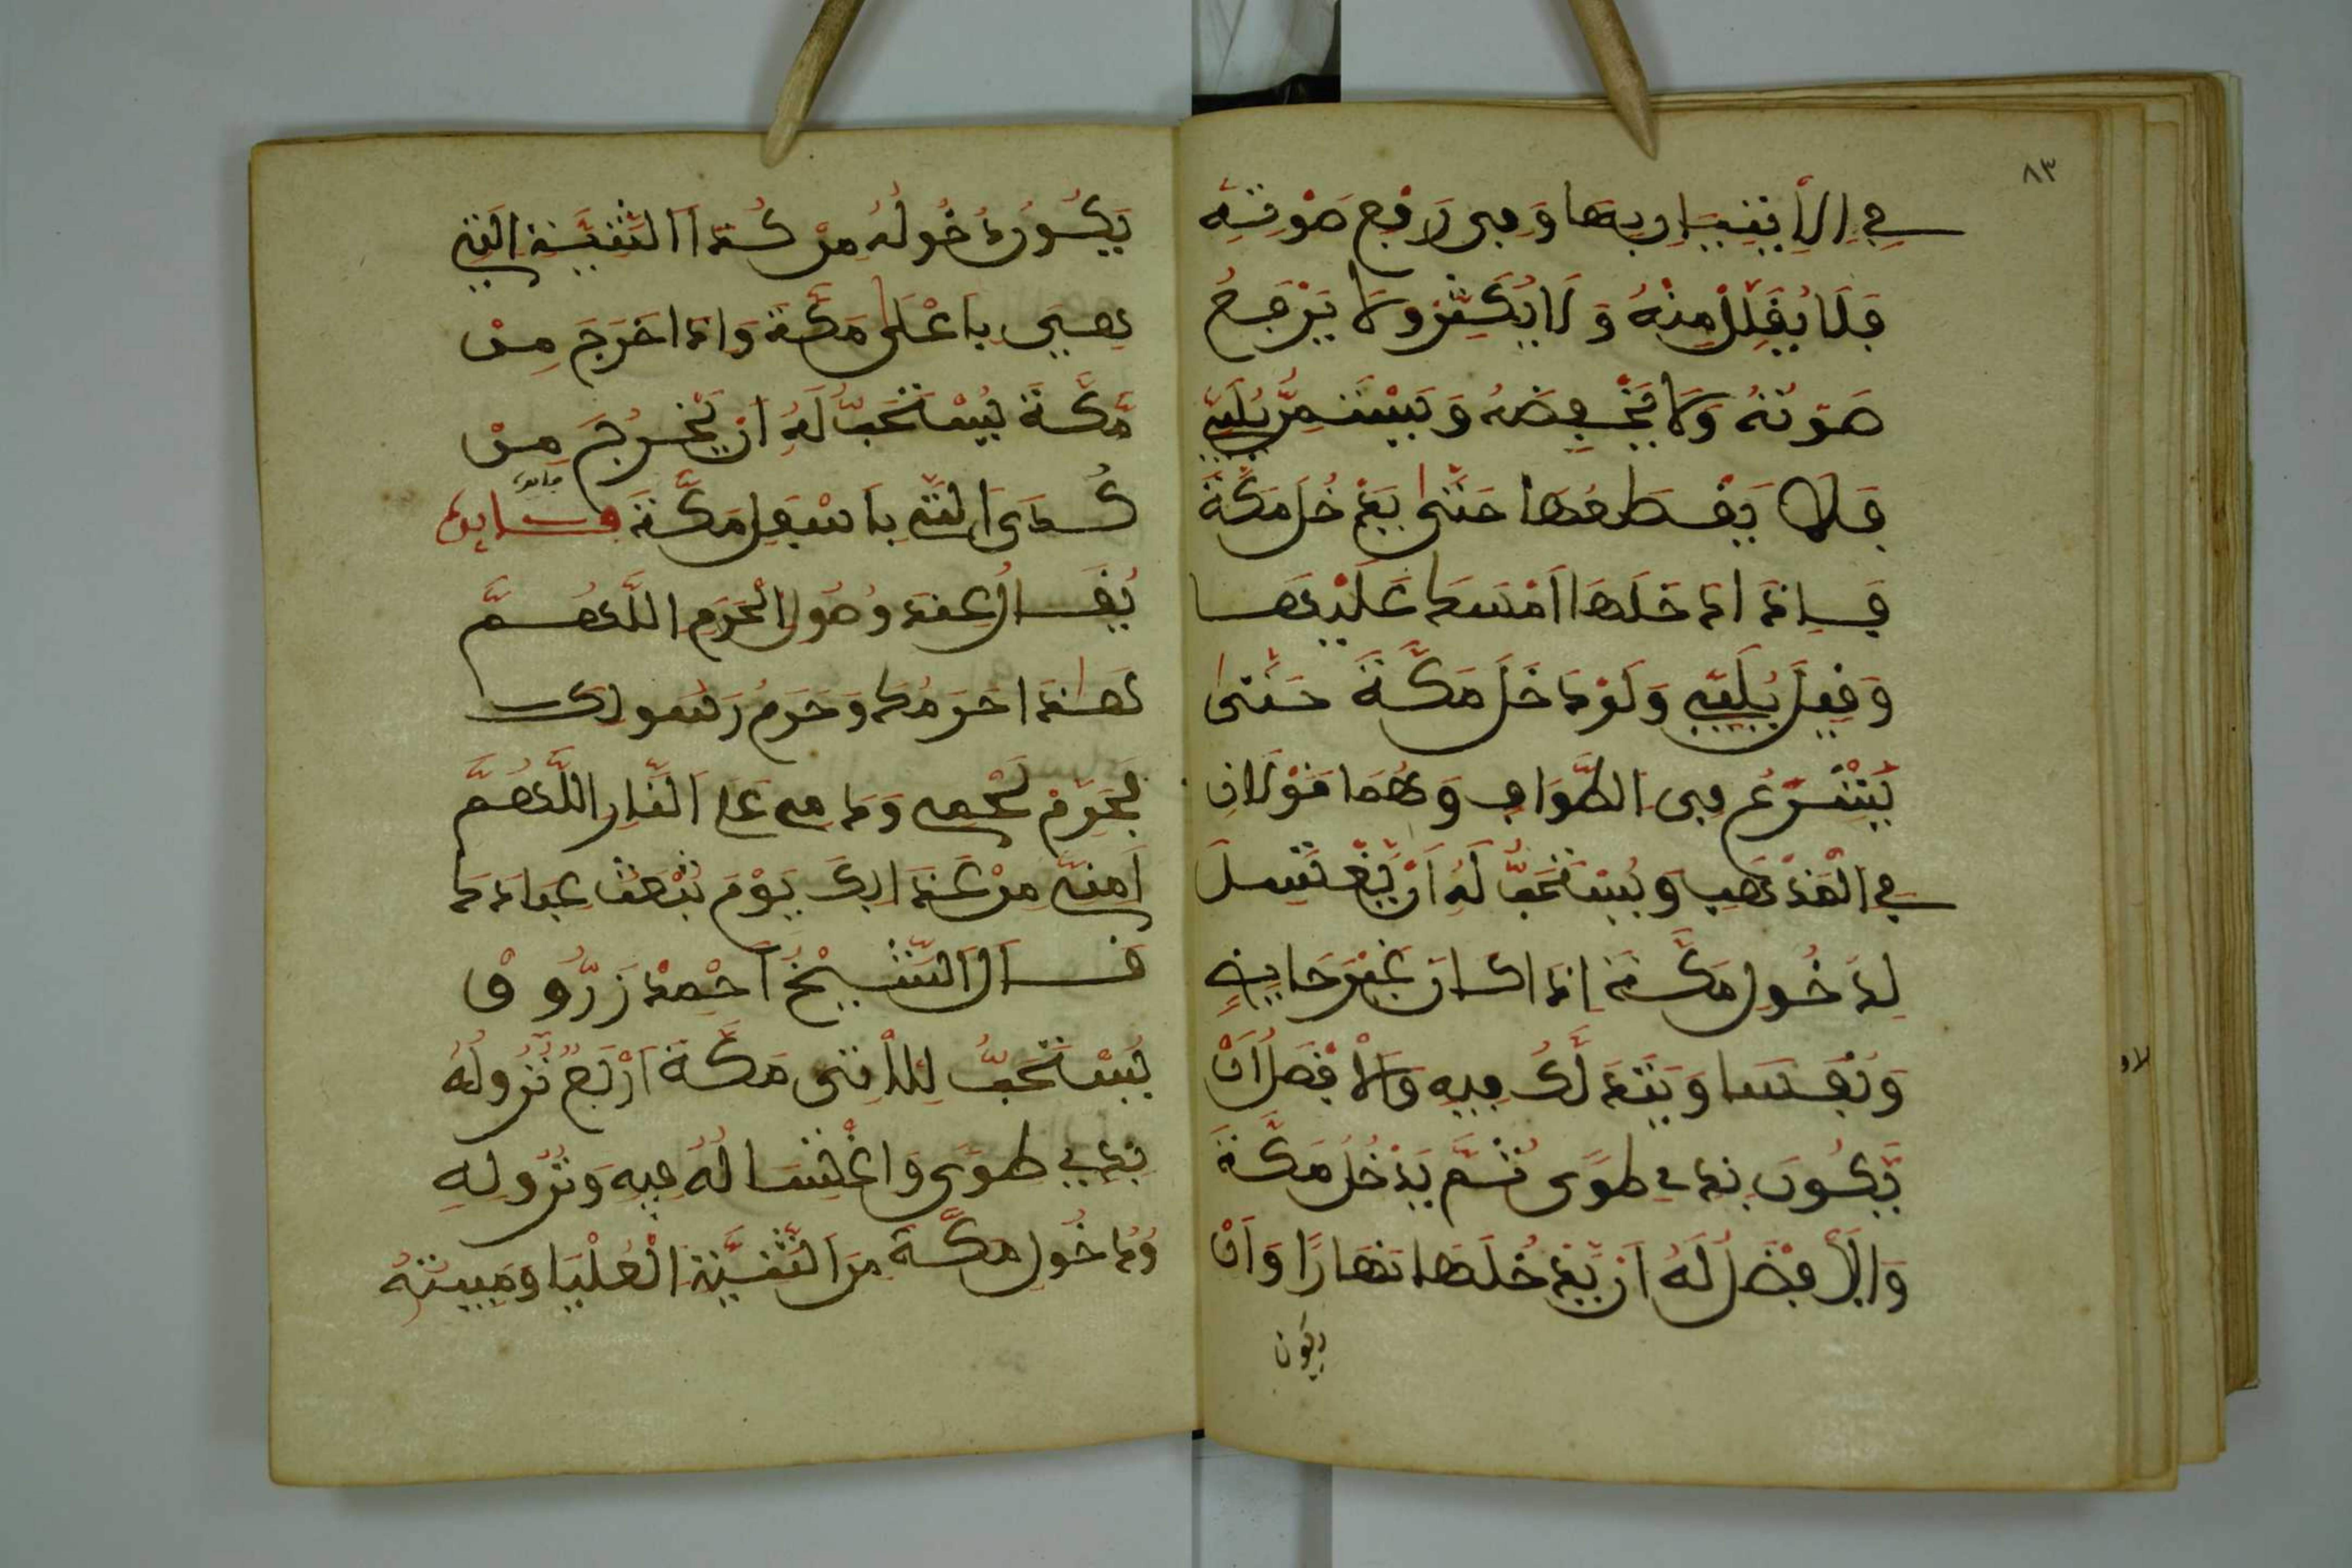 ٨٣
في الاتيان بها وفي رفع صوته
فلا يقلل منه ولا يكثر ولا يرفع
صوته ولا يخفضه ويستمر يلبي
فلا يقطعها حتى يدخل مكة
فاذا دخلها امسك عليها
وقيل يلبي ولو دخل مكة حتى
يشرع في الطواف وهما قولان
في المذهب ويستحب له ان يغتسل
لدخول مكة اذا كان غير حايض
ونفسا ويتدلك فيه والافضل ان
يكون بذي طوى ثم يدخل مكة
والافضل له ان يدخلها نهارا وان
يكون
يكون دخوله من كدا الثنية التي
هي باعلى مكة واذا خرج من
مكة يستحب له ان يخرج من
كدى التي باسفل مكة فايدة
فايدة
يقال عند وصول الحرم اللهم
هذا حرمك وحرم رسولك
فحرم لحمي ودمي على النار اللهم
امني من عذابك يوم تبعث عبادك
قال الشيخ احمد زروق
يستحب للاتى مكة اربع نزوله
بذي طوى واغتساله فيه ونزوله
ودخول مكة من الثنية العليا ومبيته